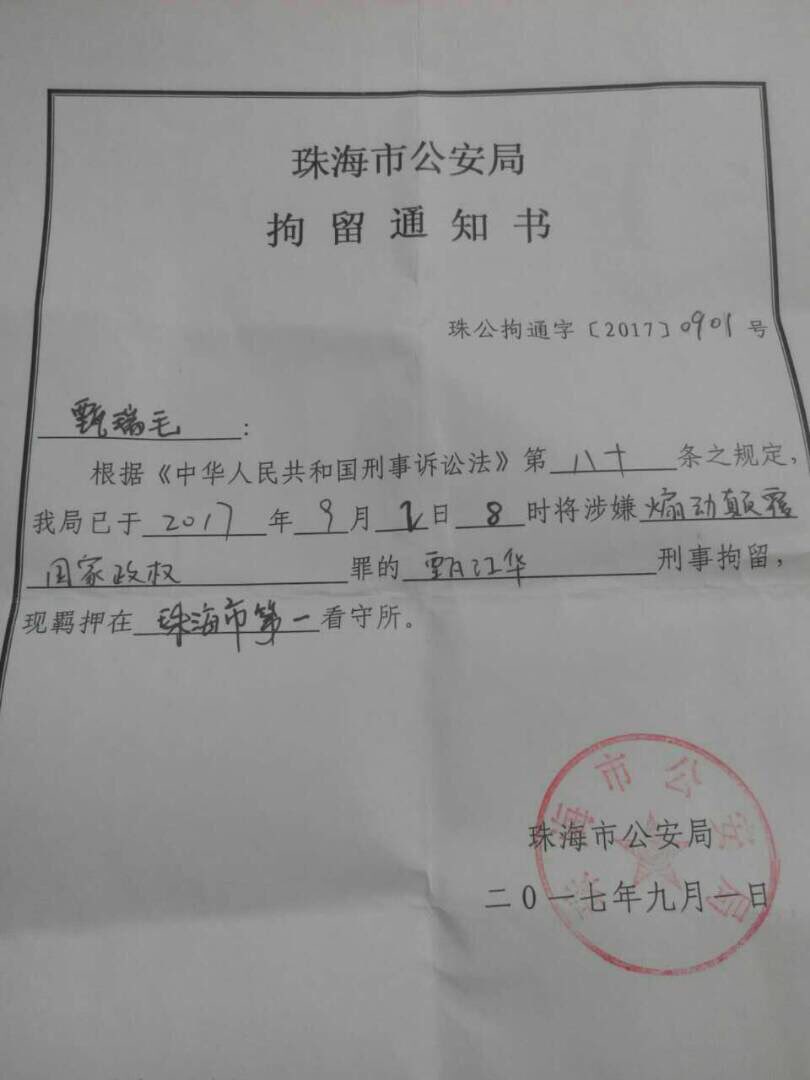 珠海市公安局
拘留通知书
珠公拘通字〔2017〕0901号
甄瑞毛：
根据《中华人民共和国刑事诉讼法》第八十条之规定，
我局已于2017年9月2日8时将涉嫌煽动颠覆
国家政权罪的甄江华刑事拘留，
现羁押在珠海市第一看守所。
珠海市公安局
珠海市公安局
二〇一七年九月一日